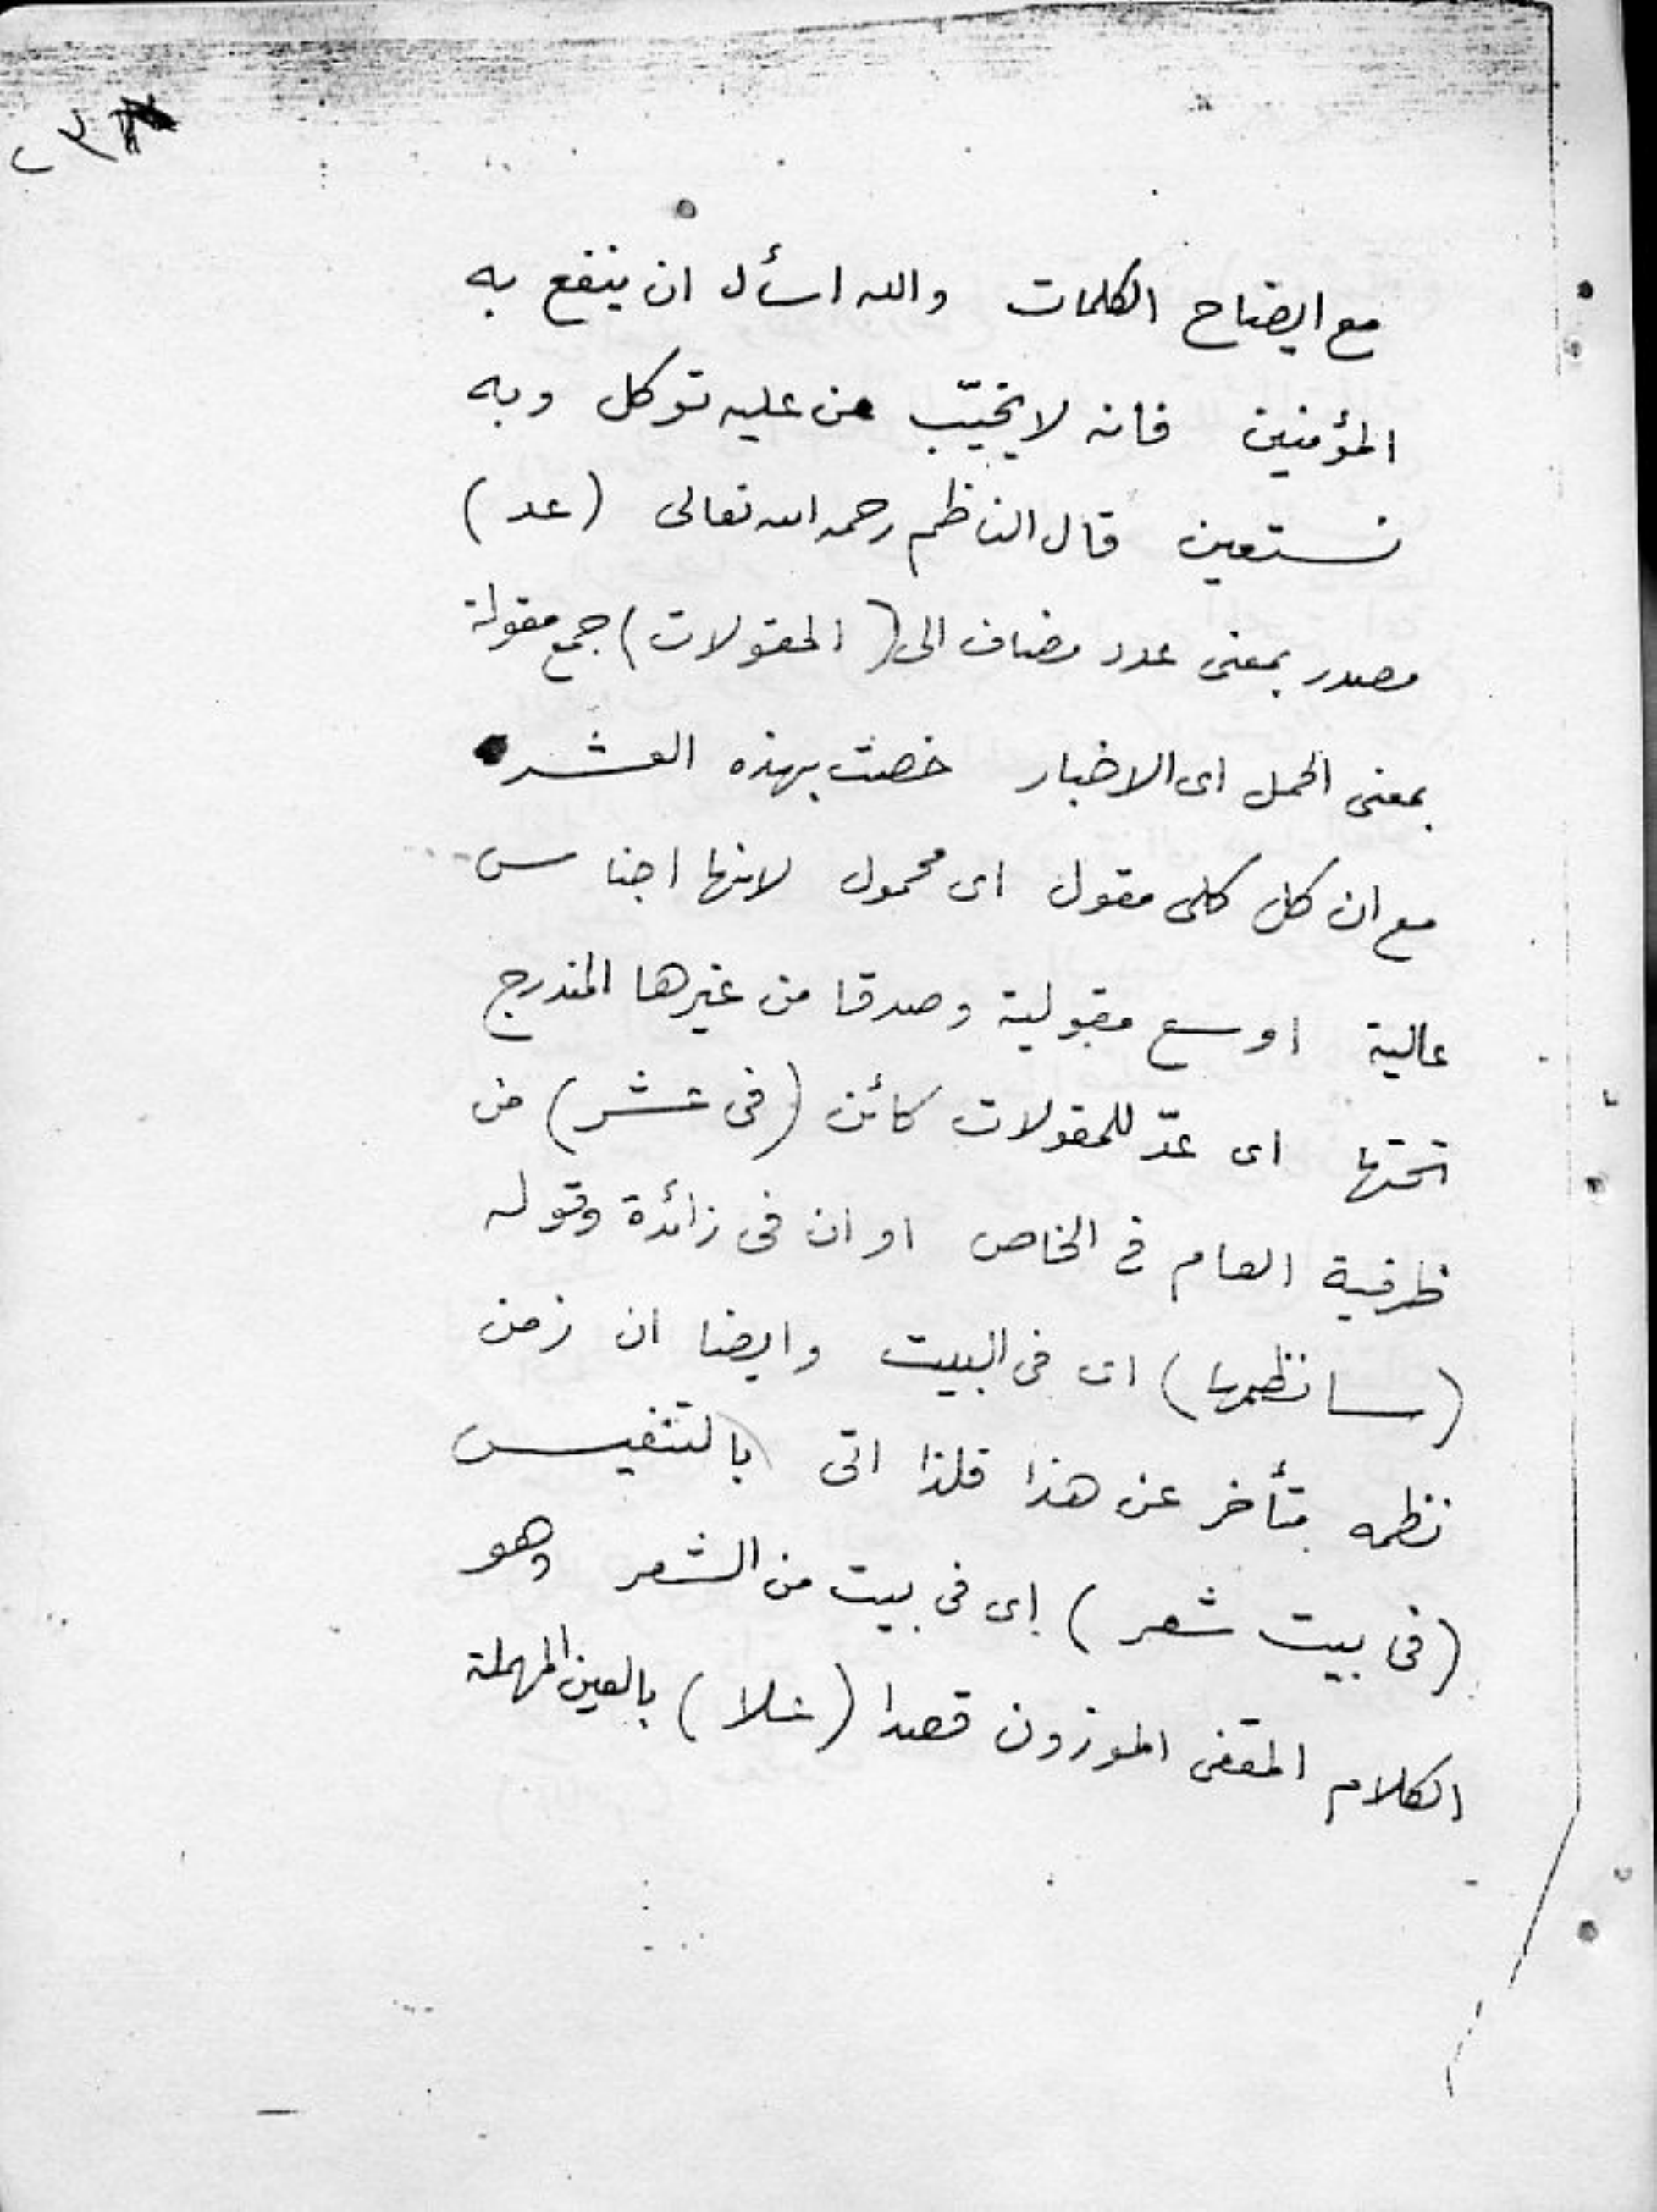 مع ايضاح الكلمات والله اسأل ان ينفع به
المؤمنين فانه لا يخيّب من عليه توكل وبه
نستعين قال الناظم رحمه الله تعالى (عد)
مصدر بمعنى عدد مضاف الى (المقولات) جمع مقولة
بمعنى الحمل اى الاخبار خصت بهذه العشر
مع ان كل كلى مقول اى محمول لانها اجناس
عالية اوسع مقبولية وصدقا من غيرها المندرج
تحتها اى عدّ للمقولات كائن (فى عشر) من
ظرفية العام فى الخاص او ان فى زائدة وقوله
(سانظمها) اى فى البيت وايضا ان زمن
نظمه متأخر عن هذا فلذا اتى بالتنفيس
(فى بيت شعر) اى فى بيت من الشعر وهو
الكلام المقفى الموزون قصدا (علا) بالعين المهملة